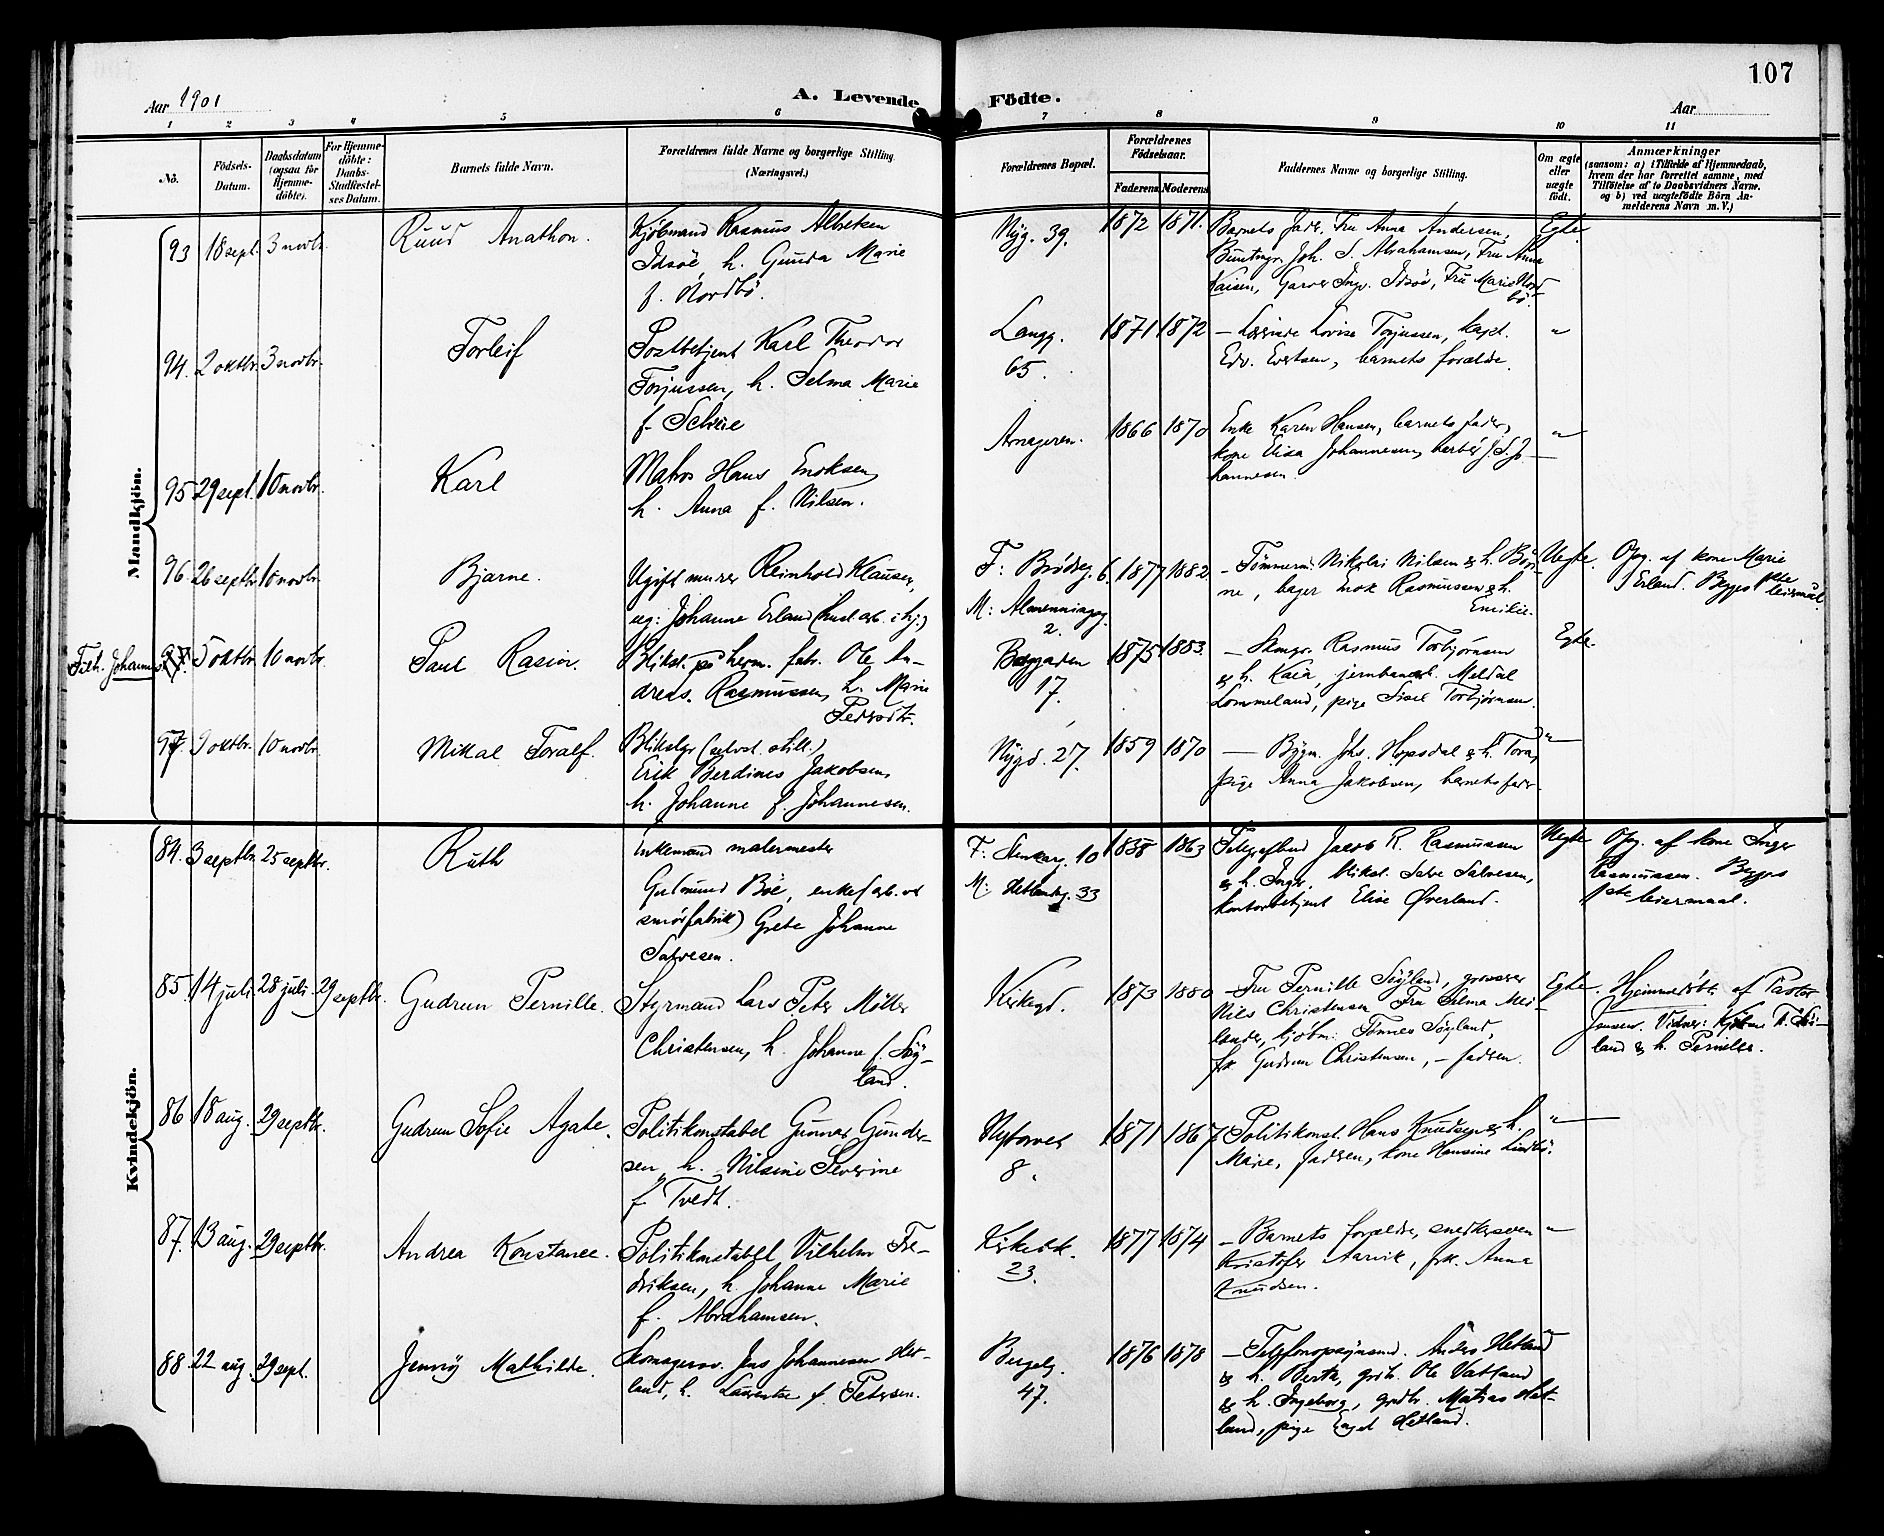 107
Aar 1901
A. Levende Födte.
Aar
1 2 3 4 5 6 7 8 9 10 11
Nô.
Födsels-
Datum.
Daabsdatum
(ogsaa for
Hjemme-
döbte).
For Hjemme-
döbte:
Daabs-
Stadfæstel-
ses Datum.
Barnets fulde Navn.
Forældrenes fulde Navne og borgerlige Stilling
(Næringsvei.)
Forældrenes Bopæl.
Forældrenes
Födselsaar.
Faderens
Moderens
Faddernes Navne og borgerlige Stilling.
Om ægte
eller
uægte
födt.
Anmærkninger
(saasom: a) i Tilfælde af Hjemmedaab,
hvem der har forrettet samme, med
Tilföielse af to Daabsvidners Navne,
og b) ved uægtefödte Börn An-
melderens Navn m. V.)
Mandkjön.
93 18 sept. 3 novbr. Ruud Anathon.
Kjöbmand Rasmus Albretsen
Idsöe, h. Gunda Marie
f. Nordbö.
Nyg. 39. 1872 1871.
Barnets fadr. Fru Anna Andersen,
Buntmgr. Joh. S. Abrahamsen, Fru Anna
Kaisen, Garver Ingv. Idsöe, Fru Marie Nord
bö.
Egte
94. 2 oktbr. 3 novbr. Torleif
Postbetjent Karl Theodor
Torjussen, h. Selma Marie
f. Selvie
Langg.
65.
1871 1872
– Lærerinde Lovise Torjussen, kapt.
Edv. Evertsen, barnets forælde.
"
95 29 sept. 10 novbr. Karl
Matros Hans Enoksen,
h. Anna f. Nilsen.
Arnageren. 1866 1870
Enke Karen Hansen, barnets fader,
kone Elisa Johannesen, barber J. S. Jo-
hannesen.
"
96 26 septbr. 10 novbr. Bjarne.
Ugift murer Reinhold Klausen,
ug: Johanne Erland (hust arb. i hj.)
F: Brödreg. 6.
M: Almenningsg.
2.
1877 1882
– Tömmerm. Nikolai Nilsen & h. Böri-
ne, bager Enok Rasmussen & h.
Emilie.
Uegte.
Opg. af kone Marie
Erland. Begges 1ste
leiermål.
Filh. Johannes 97. 5 oktbr. 10 novbr. Paul Rasin.
Blikst. på herm. fabr. Ole An-
dreas. Rasmussen, h. Marie
Pedersdtr.
Bøgaden
17.
1875 1883.
– Skmgr. Rasmus Torbjörnsen
& h. Kaia, jernbanearb. Meldal
Lommeland, pige Sisel Torbjörnsen.
Egte.
97 9 oktbr. 10 novbr. Mikal Toralf.
Blikslgr (selvst. still.),
Erik Berdines Jakobsen,
h. Johanne f. Johannesen.
Nygd. 27. 1859 1870
– Bygm. Johs. Hopsdal & h. Tora,
pige Anna Jakobsen, barnets fadr.
"
Kvindekjön.
84. 3 septbr. 25 septbr. Ruth
Enkemand malermester
Gudmund Böe, enke (arb. ved
smörfabrik) Grete Johanne
Salvesen.
F: Stenkarg. 10
M: Hetlandsg. 33
1838 1863
Telegrafbud Jacob R. Rasmussen
& h. Inger, blikst. Salve Salvesen,
kontorbetjent Elise Øverland.
Uegte
Opg. af kone Inger
Rasmussen. Begges
1ste leiermaal.
85. 14 juli. 28 juli. 29 septbr. Gudrun Pernille.
Styrmand Lars Peter Möller
Christensen, h. Johanne f. Söy-
land.
Kirkegd. 1873 1880
– Fru Pernille Söyland, grosserer
Nils Christensen Fru Selma Mei-
lænder, kjöbm: Tönnes Söyland,
frk Gudrun Christensen, – fadren.
Egte.
Hjemmedöbt af Pastor
Jensen. Vidner: Kjöbm. T. Söi-
land & h. Pernille.
86 18 aug. 29 septbr. Gudrun Sofie Agate.
Politikonstabel Gunnar Gunder-
sen, h. Nilsine Severine
f. Tvedt.
Nytorvet
8.
1871 1867
– Politikonst. Hans Knudsen & h.
Marie, fadren, kone Hansine Lindbö.
"
87. 13 aug. 29 septbr. Andrea Konstance.
Politikonstabel Vilhelm Fre-
driksen, h. Johanne Marie
f. Abrahamsen.
Kirkebk.
23.
1877 1874
– Barnets forældre, snedkersven
Kristofer Aarvik, frk. Anna
Knudsen.
"
88 22 aug. 29 sept. Jenny Mathilde.
Skomagersv. Jens Johannesen Het-
land, h. Laurentse f. Petersen.
Bergelg.
47.
1876 1878
– Telefonopsynsmd. Anders Hetland
& h. Berta, grdr. Ole Vatland
& h. Ingeborg, grdbr. Matias Het-
land, pige Engel Hetland.
"